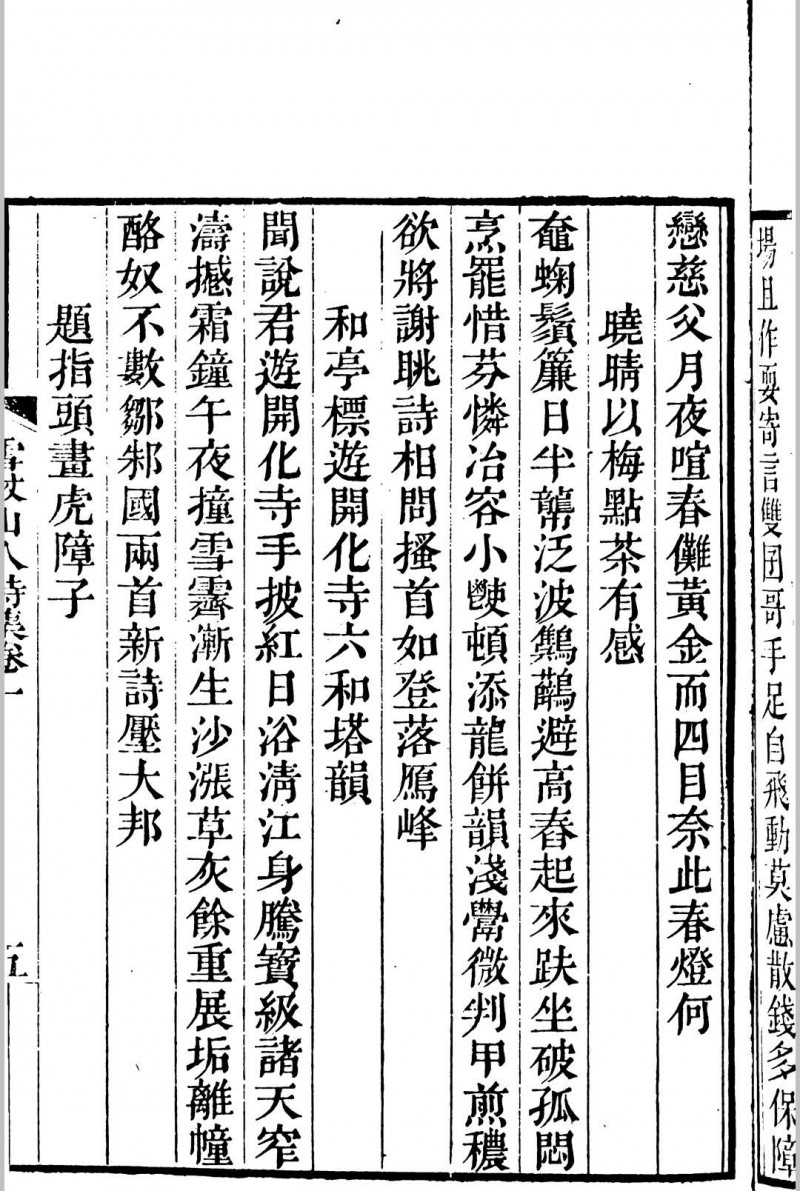 場且作耍寄言雙团哥手足自飛動莫慮散錢多保障
戀慈父月夜喧春儺黃金而四目奈此春燈何
曉晴以梅點茶有感
奩蜠鬚簾日半篣泛波鷠鷫避高舂起來趺坐破孤悶
烹罷惜芬憐冶容小甖頓添龍餅韻淺甖微判甲煎穠
欲將謝眺詩相問搔首如登落鴈峰
和亭標遊開化寺六和塔韻
聞說君遊開化寺手披紅日浴清江身騰寶級諸天窄
濤撼霜鐘午夜撞雪霽漸生沙漲草灰餘重展垢離幢
酪奴不數鄒邾國兩首新詩壓大邦
題指頭畫虎障子
山人詩集卷一
五